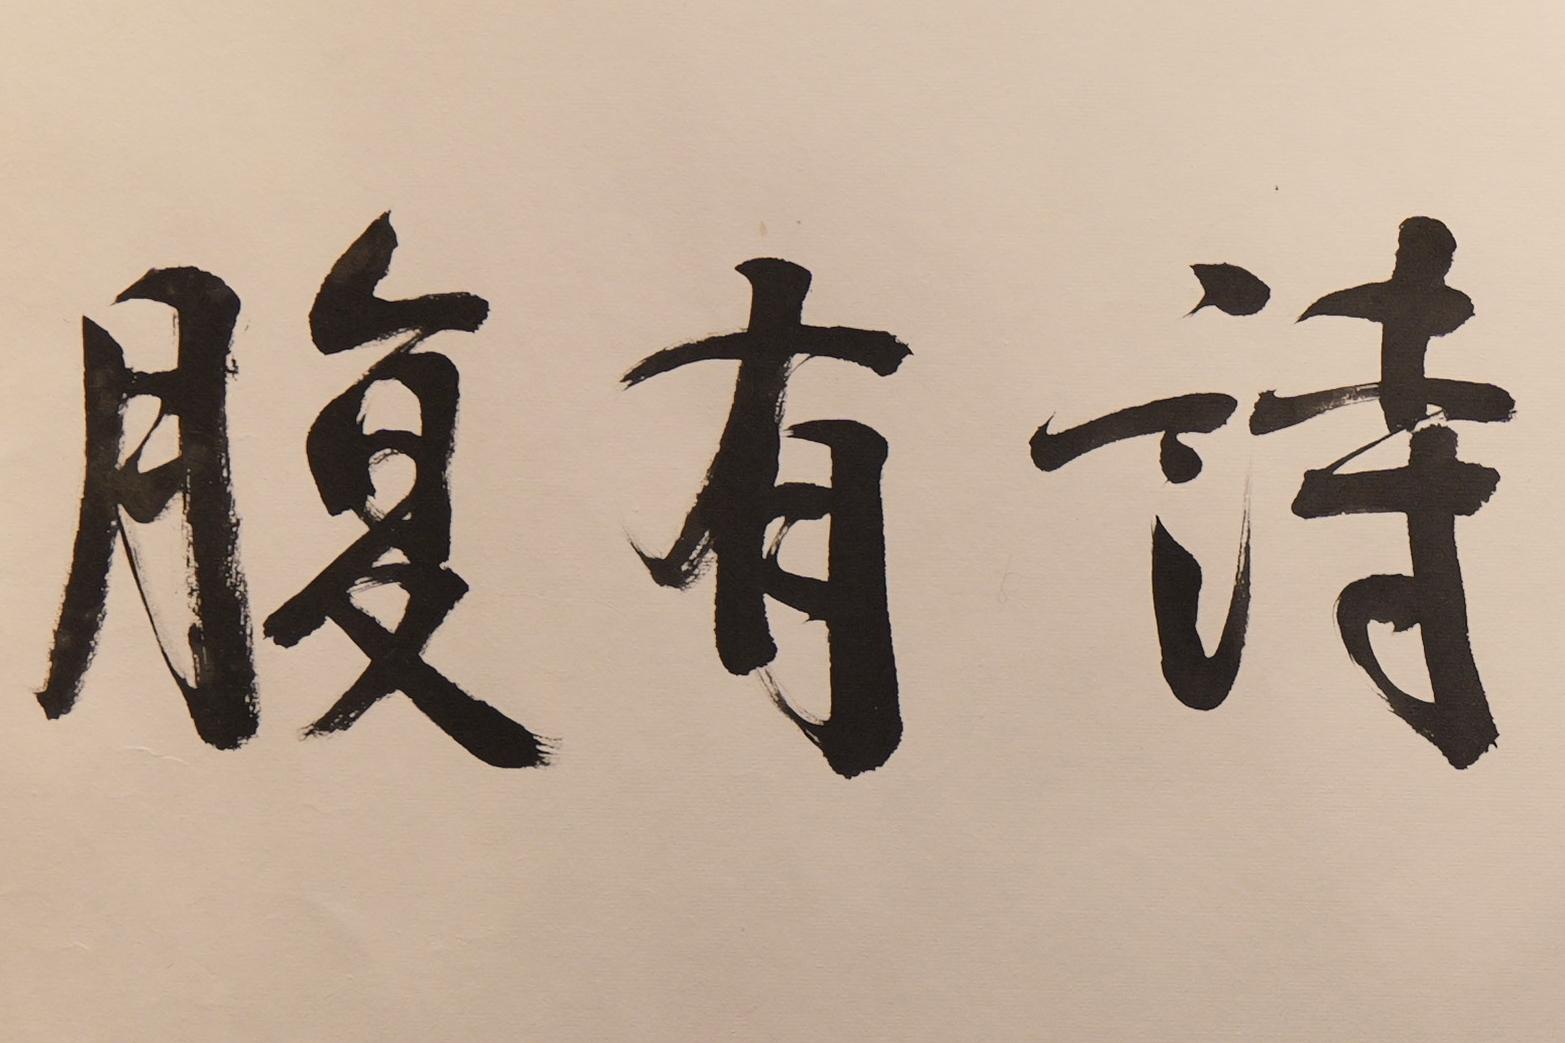 腹有詩